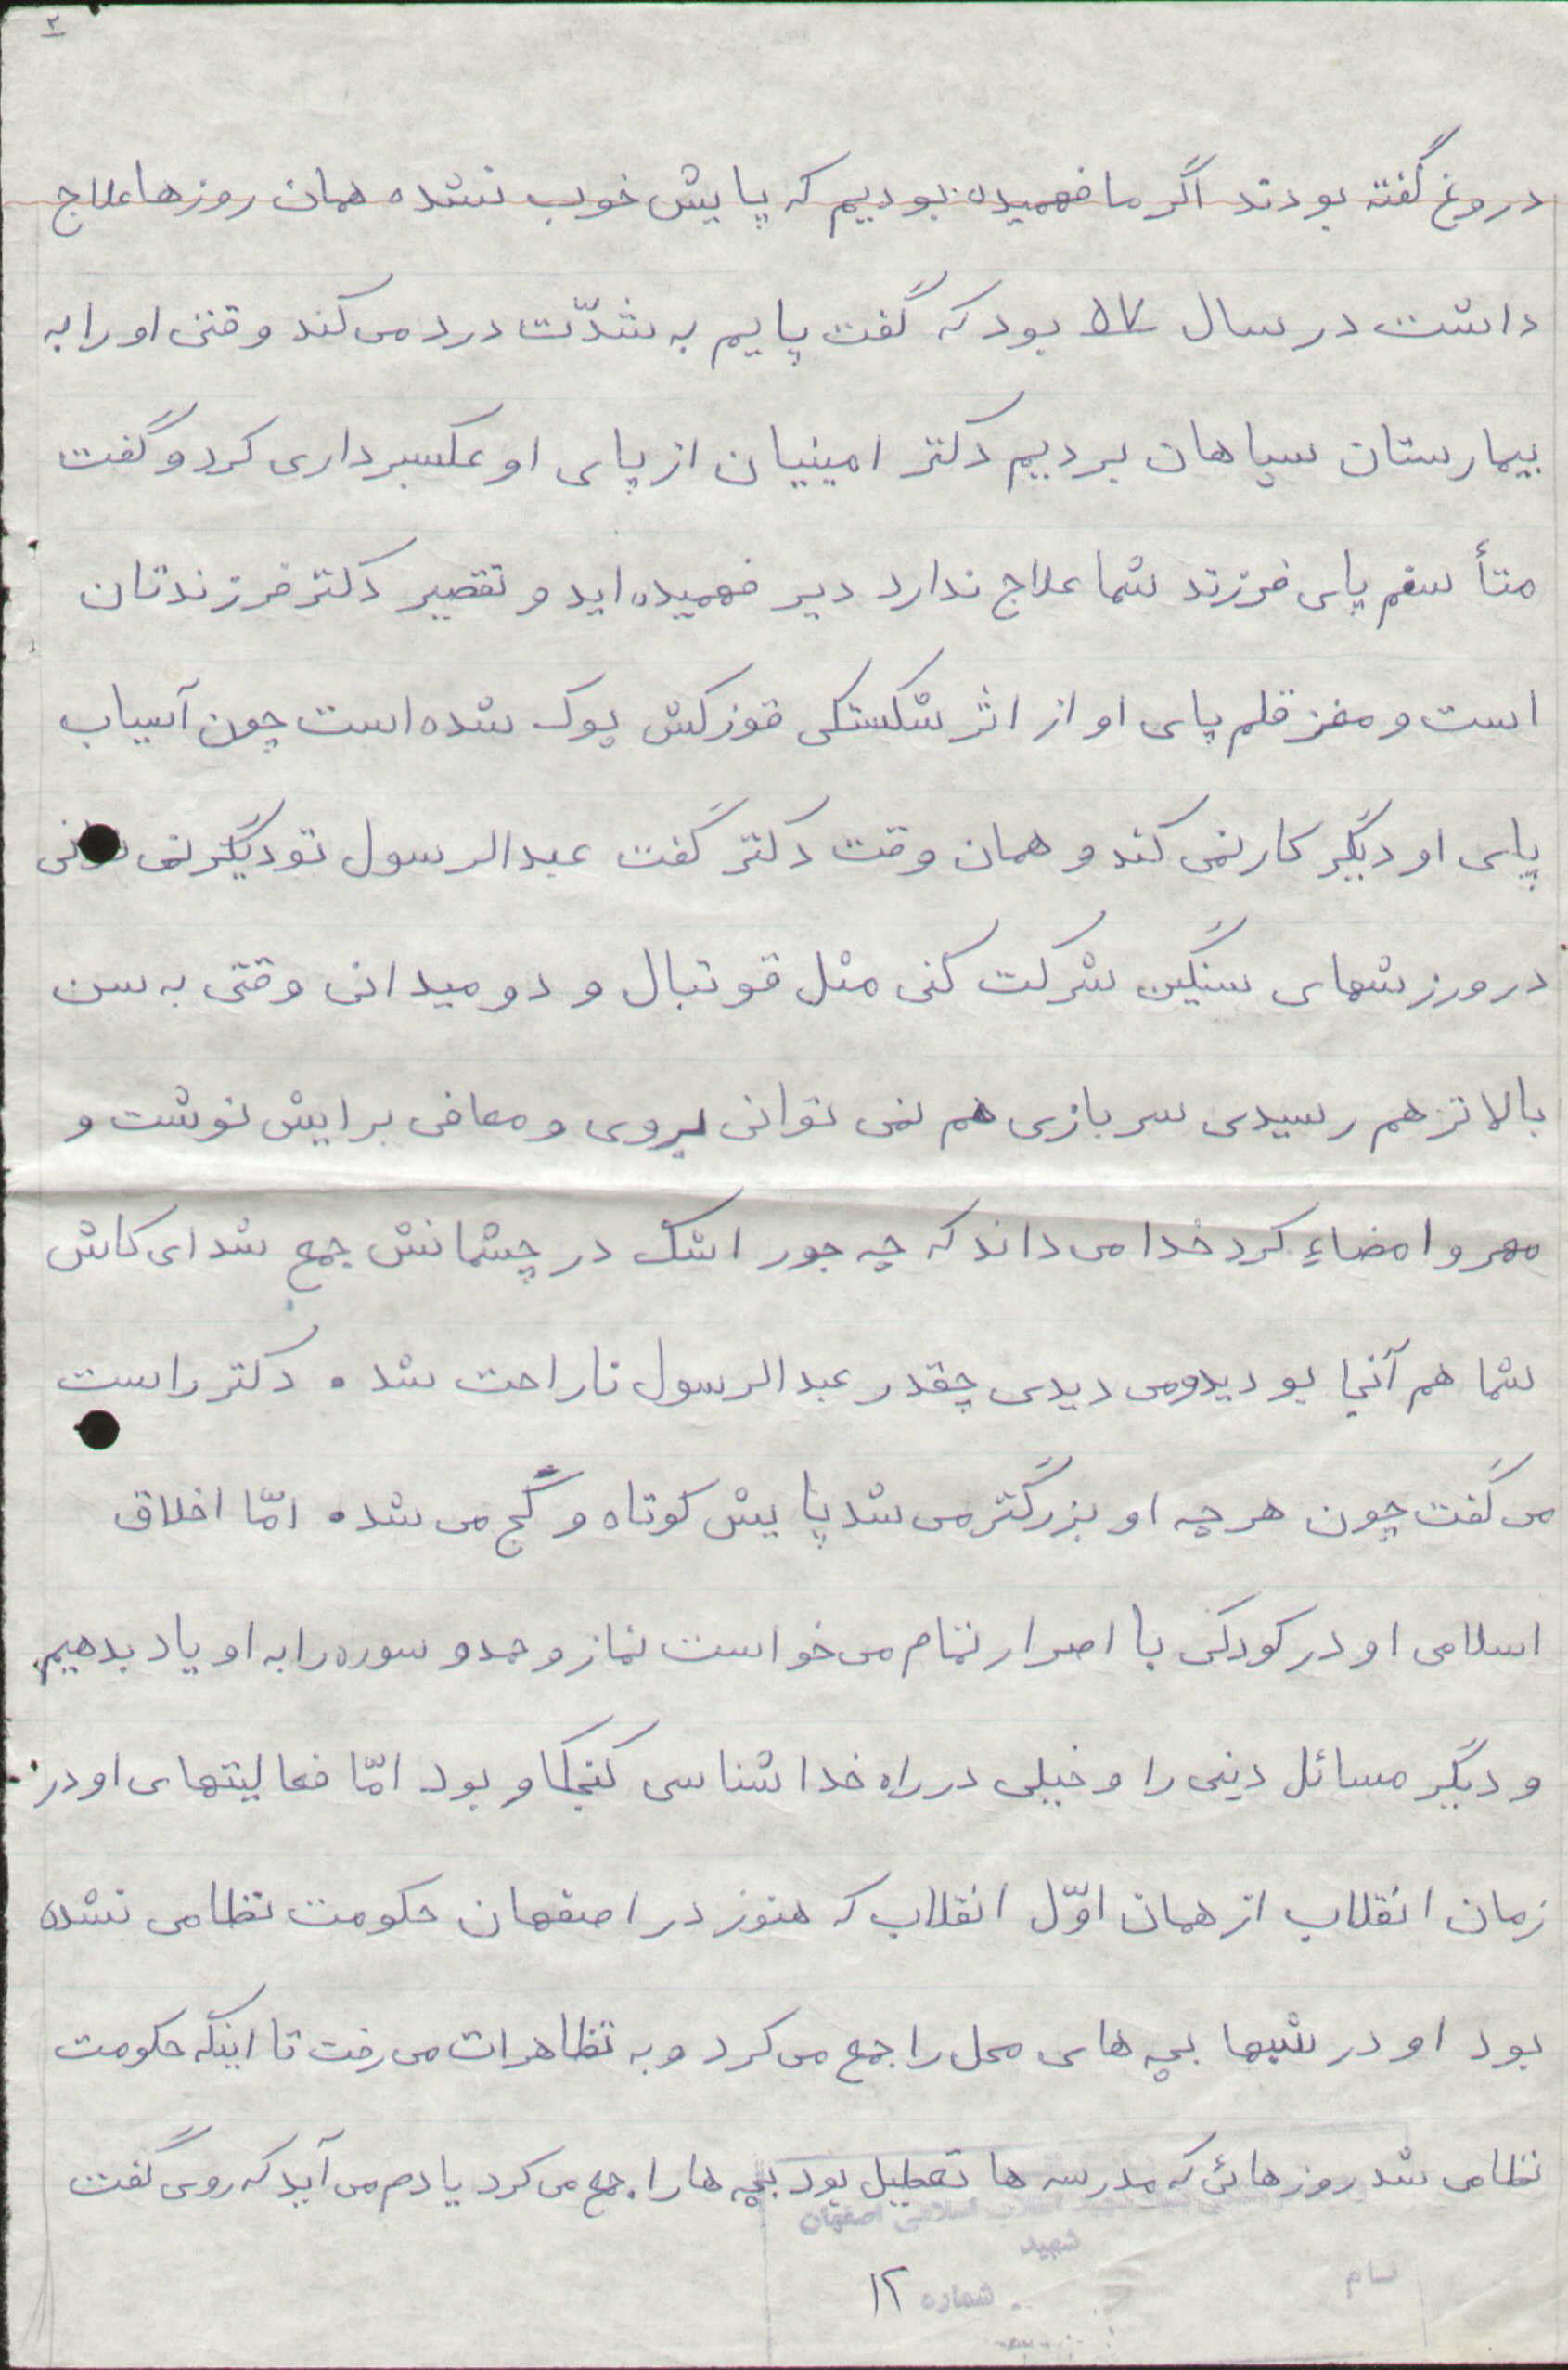 ۲
دروغ گفته بودند اگر ما فهمیده بودیم که پایش خوب نشده همان روزها علاج
داشت در سال ۵۷ بود که گفت پایم به شدّت درد می کند وقتی او را به
بیمارستان سپاهان بردیم دکتر امینیان از پای او عکسبرداری کرد و گفت
متأسفم پای فرزند شما علاج ندارد دیر فهمیده اید و تقصیر دکتر فرزندتان
است و مغز قلم پای او از اثر شکستگی قوزکش پوک شده است چون آسیاب
پای او دیگر کار نمی کند و همان وقت دکتر گفت عبدالرسول تو دیگر نمی توانی
در ورزشهای سنگین شرکت کنی مثل فوتبال و دومیدانی وقتی به سن
بالاتر هم رسیدی سربازی هم نمی توانی بروی و معافی برایش نوشت و
مهر و امضاءِ کرد خدا می داند که چه جور اشک در چشمانش جمع شد ای کاش
شما هم آنجا بودید و می دیدی چقدر عبدالرسول ناراحت شد . دکتر راست
می گفت چون هر چه او بزرگتر می شد پایش کوتاه و گج می شد . امّا اخلاق
اسلامی او در کودکی با اصرار تمام می خواست نماز و حمد و سوره را به او یاد بدهیم
و دیگر مسائل دینی را و خیلی در راه خداشناسی کنجکاو بود امّا فعالیتهای او در
زمان انقلاب از همان اوّل انقلاب که هنوز در اصفهان حکومت نظامی نشده
بود او در شبها بچه های محل را جمع می کرد و به تظاهرات می رفت تا اینکه حکومت
نظامی شد روزهائی که مدرسه ها تعطیل بود بچه ها را جمع می کرد یادم می آید که روزی گفت
انقلاب اسلامی اصفهان
شهید
نام
شماره ۱۲